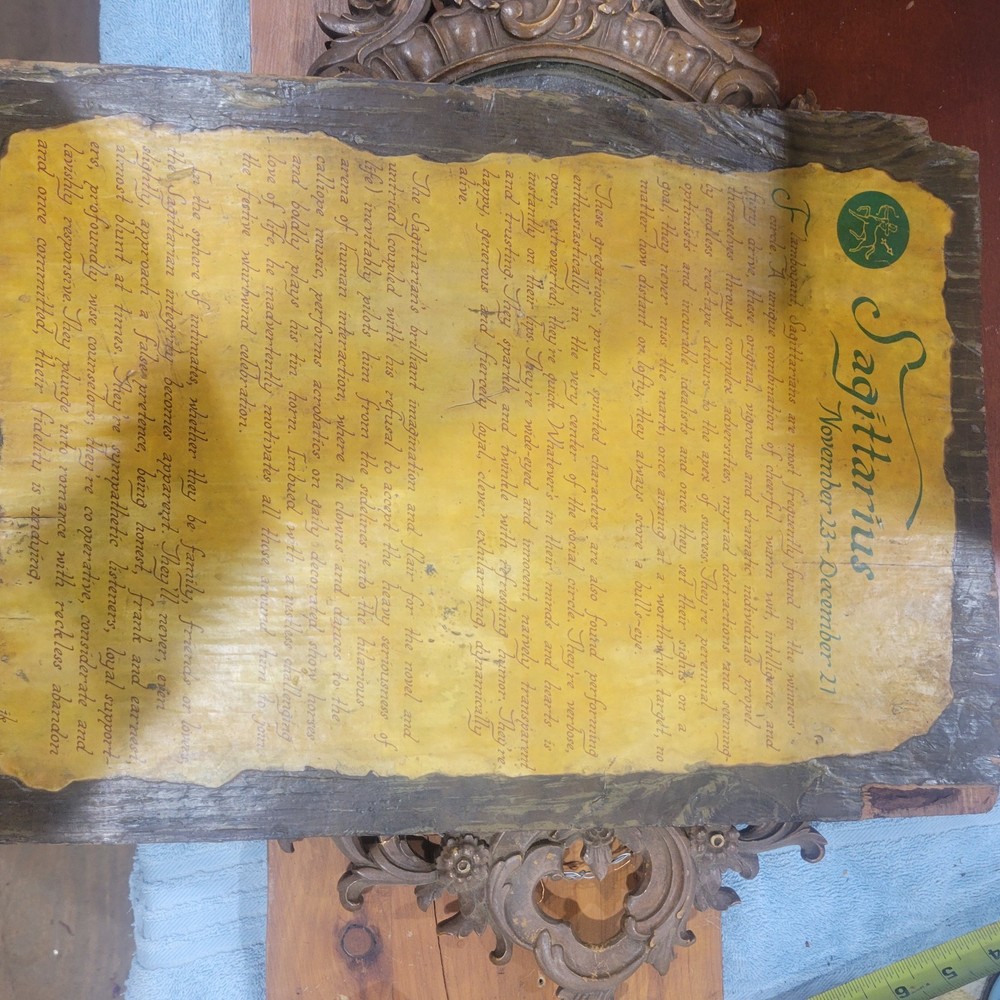 Sagittarius
November 23~December 21
Famous Sagittarians are most frequently found in the winner's
A unique combination of clarity, wit, intelligence and
drive, these original, vigorous and dramatic individuals propel
themselves through countless adventures, myriad distractions and seeming-
ly endless scenic detours to the apex of success. They're perennial
optimists and incurable idealists and once they set their sights on a
goal, they never miss the mark; once aiming at a worthwhile target, no
matter how distant or lofty, they always score a bull's-eye.
These gregarious, proud, spirited characters are also found performing
enthusiastically in the very center of the social circle. They're verbose,
open, extroverted; they're quick. Whatever's in their minds and hearts is
instantly on their lips. They're wide-eyed and innocent, naively transparent
and trusting. They sparkle and twinkle with refreshing humor. They're
happy, generous and fiercely loyal, clever, exhilarating, dynamically
alive.
The Sagittarian's brilliant imagination and flair for the novel and
untried (coupled with his refusal to accept the heavy seriousness of
life) inevitably pilots him from the tedious into the hilarious
arena of human interaction, where he clowns and dances to the
calliope music, performs acrobatics on gaily decorated ebony horses
and boldly plays his tin horn. Imbued with a naive, childlike
love of life, he inadvertently motivates all those around him to join
the festive whirlwind celebration.
In the sphere of intimates, whether they be family, friends or lovers,
the Sagittarian integrity becomes apparent. They'll never, even
slightly, approach a false pretense, being honest, frank and earnest;
almost blunt at times. They're sympathetic listeners, loyal support-
ers, profoundly wise counselors; they're co-operative, considerate and
lavishly responsive. They plunge into romance with reckless abandon
and once committed, their fidelity is undying.
4
5
6